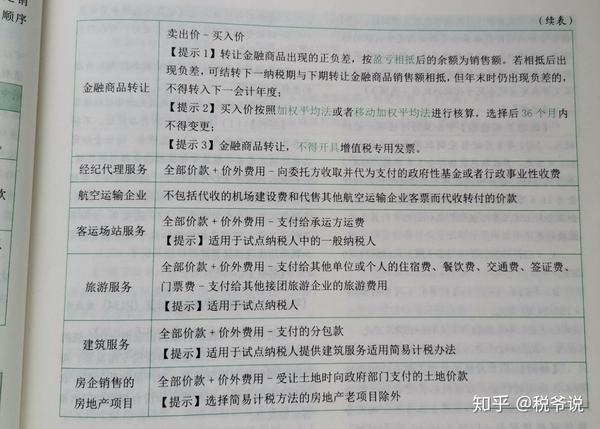 顺序
(续表)
卖出价-买入价
【提示1】转让金融商品出现的正负差，按盈亏相抵后的余额为销售额。若相抵后出
现负差，可结转下一纳税期与下期转让金融商品销售额相抵，但年末时仍出现负差的，
金融商品转让
不得转入下一会计年度；
【提示2】买入价按照加权平均法或者移动加权平均法进行核算，选择后36个月内
不得变更；
【提示3】金融商品转让，不得开具增值税专用发票。
经纪代理服务
全部价款+价外费用-向委托方收取并代为支付的政府性基金或者行政事业性收费
航空运输企业
不包括代收的机场建设费和代售其他航空运输企业客票而代收转付的价款
客运场站服务
全部价款+价外费用-支付给承运方运费
【提示】适用于试点纳税人中的一般纳税人
旅游服务
全部价款+价外费用-支付给其他单位或个人的住宿费、餐饮费、交通费、签证费、
门票费-支付给其他接团旅游企业的旅游费用
【提示】适用于试点纳税人
建筑服务
全部价款+价外费用-支付的分包款
【提示】适用于试点纳税人提供建筑服务适用简易计税办法
房企销售的
房地产项目
全部价款+价外费用-受让土地时向政府部门支付的土地价款
【提示】选择简易计税方法的房地产老项目除外
知乎 @税爷说